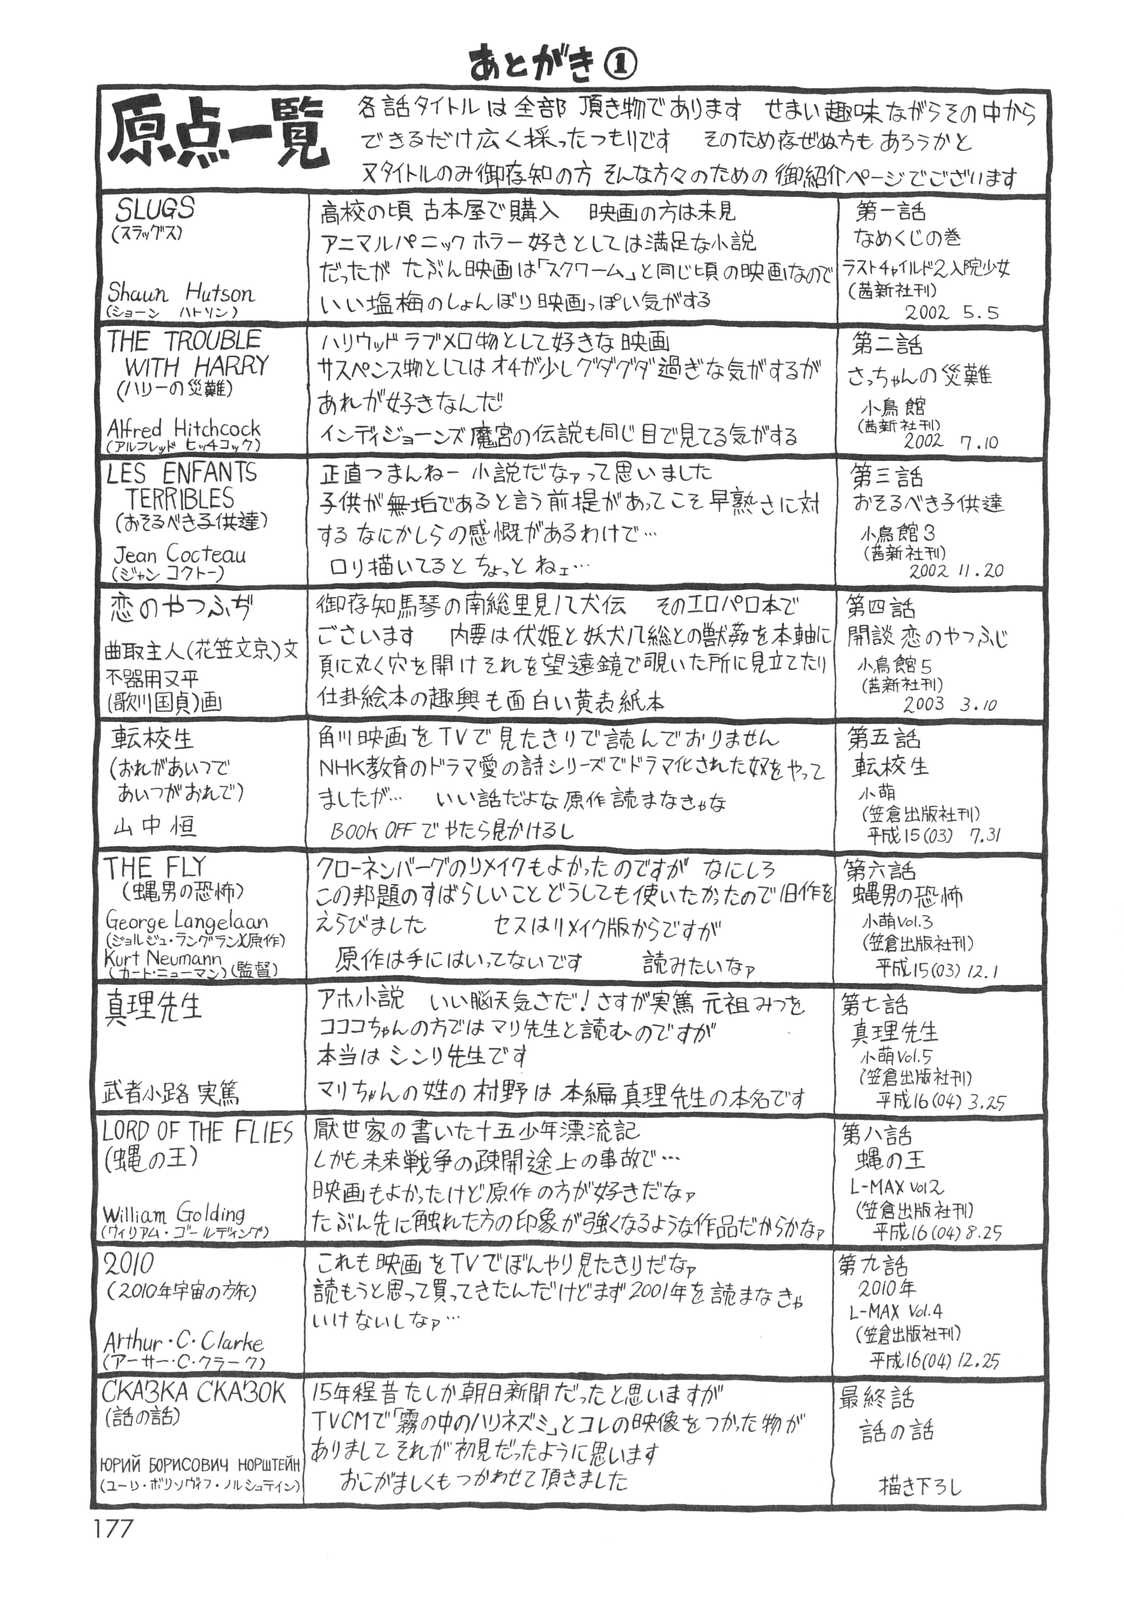 あとがき①
原点一覧
各話タイトルは全部 頂き物であります せまい趣味ながらその中から
できるだけ広く採ったつもりです そのため存ぜぬ方もあろうかと
又タイトルのみ御存知の方 そんな方々のための 御紹介ページでございます
SLUGS
(スラッグス)
Shaun Hutson
(ショーン ハトソン)
高校の頃 古本屋で購入 映画の方は未見
アニマルパニックホラー好きとしては満足な小説
だったが たぶん映画は「スクワーム」と同じ頃の映画なので
いい塩梅のしょんぼり映画っぽい気がする
第一話
なめくじの巻
ラストチャイルド2入院少女
(茜新社刊)
2002 5.5
THE TROUBLE
WITH HARRY
(ハリーの災難)
Alfred Hitchcock
(アルフレッド ヒッチコック)
ハリウッドラブメロ物として好きな映画
サスペンス物としてはオチが少しグダグダ過ぎな気がするが
あれが好きなんだ
インディジョーンズ魔宮の伝説も同じ目で見てる気がする
第二話
さっちゃんの災難
小鳥館
(茜新社刊)
2002 7.10
LES ENFANTS
TERRIBLES
(おそるべき子供達)
Jean Cocteau
(ジャン コクトー)
正直つまんねー小説だなァって思いました
子供が無垢であると言う前提があってこそ早熟さに対
するなにかしらの感慨があるわけで…
ロリ描いてると ちょっと ねェ…
第三話
おそるべき子供達
小鳥館3
(茜新社刊)
2002 11.20
恋のやつふぢ
曲取主人(花笠文京)文
不器用又平
(歌川国貞)画
御存知馬琴の南総里見八犬伝 そのエロパロ本で
ございます 内要は伏姫と妖犬八総との獣姦を本軸に
頁に丸く穴を開けそれを望遠鏡で覗いた所に見立てたり
仕掛絵本の趣興も面白い黄表紙本
第四話
開談 恋のやつふじ
小鳥館5
(茜新社刊)
2003 3.10
転校生
(おれがあいつで
あいつがおれで)
山中恒
角川映画をTVで見たきりで読んでおりません
NHK教育のドラマ愛の詩シリーズでドラマ化された奴をやって
ましたが… いい話だよな原作読まなきゃな
BOOK OFFでやたら見かけるし
第五話
転校生
小萌
(笠倉出版社刊)
平成15(03) 7.31
THE FLY
(蝿男の恐怖)
George Langelaan
(ジョルジュ・ラングラン)(原作)
Kurt Neumann
(カート・ニューマン)(監督)
クローネンバーグのリメイクもよかったのですが なにしろ
この邦題のすばらしいこと どうしても使いたかったので旧作を
えらびました セスはリメイク版からですが
原作は手にはいってないです 読みたいなァ
第六話
蝿男の恐怖
小萌Vol.3
(笠倉出版社刊)
平成15(03)12.1
真理先生
武者小路実篤
アホ小説 いい脳天気さだ!さすが実篤 元祖みつを
コココちゃんの方ではマリ先生と読むのですが
本当は シンリ先生です
マリちゃんの姓の村野は本編真理先生の本名です
第七話
真理先生
小萌Vol.5
(笠倉出版社刊)
平成16(04)3.25
LORD OF THE FLIES
(蝿の王)
William Golding
(ウィリアム・ゴールディング)
厭世家の書いた十五少年漂流記
しかも未来戦争の疎開途上の事故で…
映画もよかったけど原作の方が好きだなァ
たぶん先に触れた方の印象が強くなるような作品だからかなァ
第八話
蝿の王
L-MAX Vol2
(笠倉出版社刊)
平成16(04)8.25
2010
(2010年宇宙の旅)
Arthur・C・Clarke
(アーサー・C・クラーク)
これも映画をTVでぼんやり見たきりだなァ
読もうと思って買ってきたんだけどまず2001年を読まなきゃ
いけないしなァ…
第九話
2010年
L-MAX Vol.4
(笠倉出版社刊)
平成16(04)12.25
СКАЗКА СКАЗОК
(話の話)
ЮРИЙ БОРИСОВИЧ НОРШТЕЙН
(ユーリ・ボリソヴィフ・ノルシュテイン)
15年程昔たしか朝日新聞だったと思いますが
TVCMで「霧の中のハリネズミ」とコレの映像をつかった物が
ありまして それが初見だったように思います
おこがましくもつかわせて頂きました
最終話
話の話
描き下ろし
177